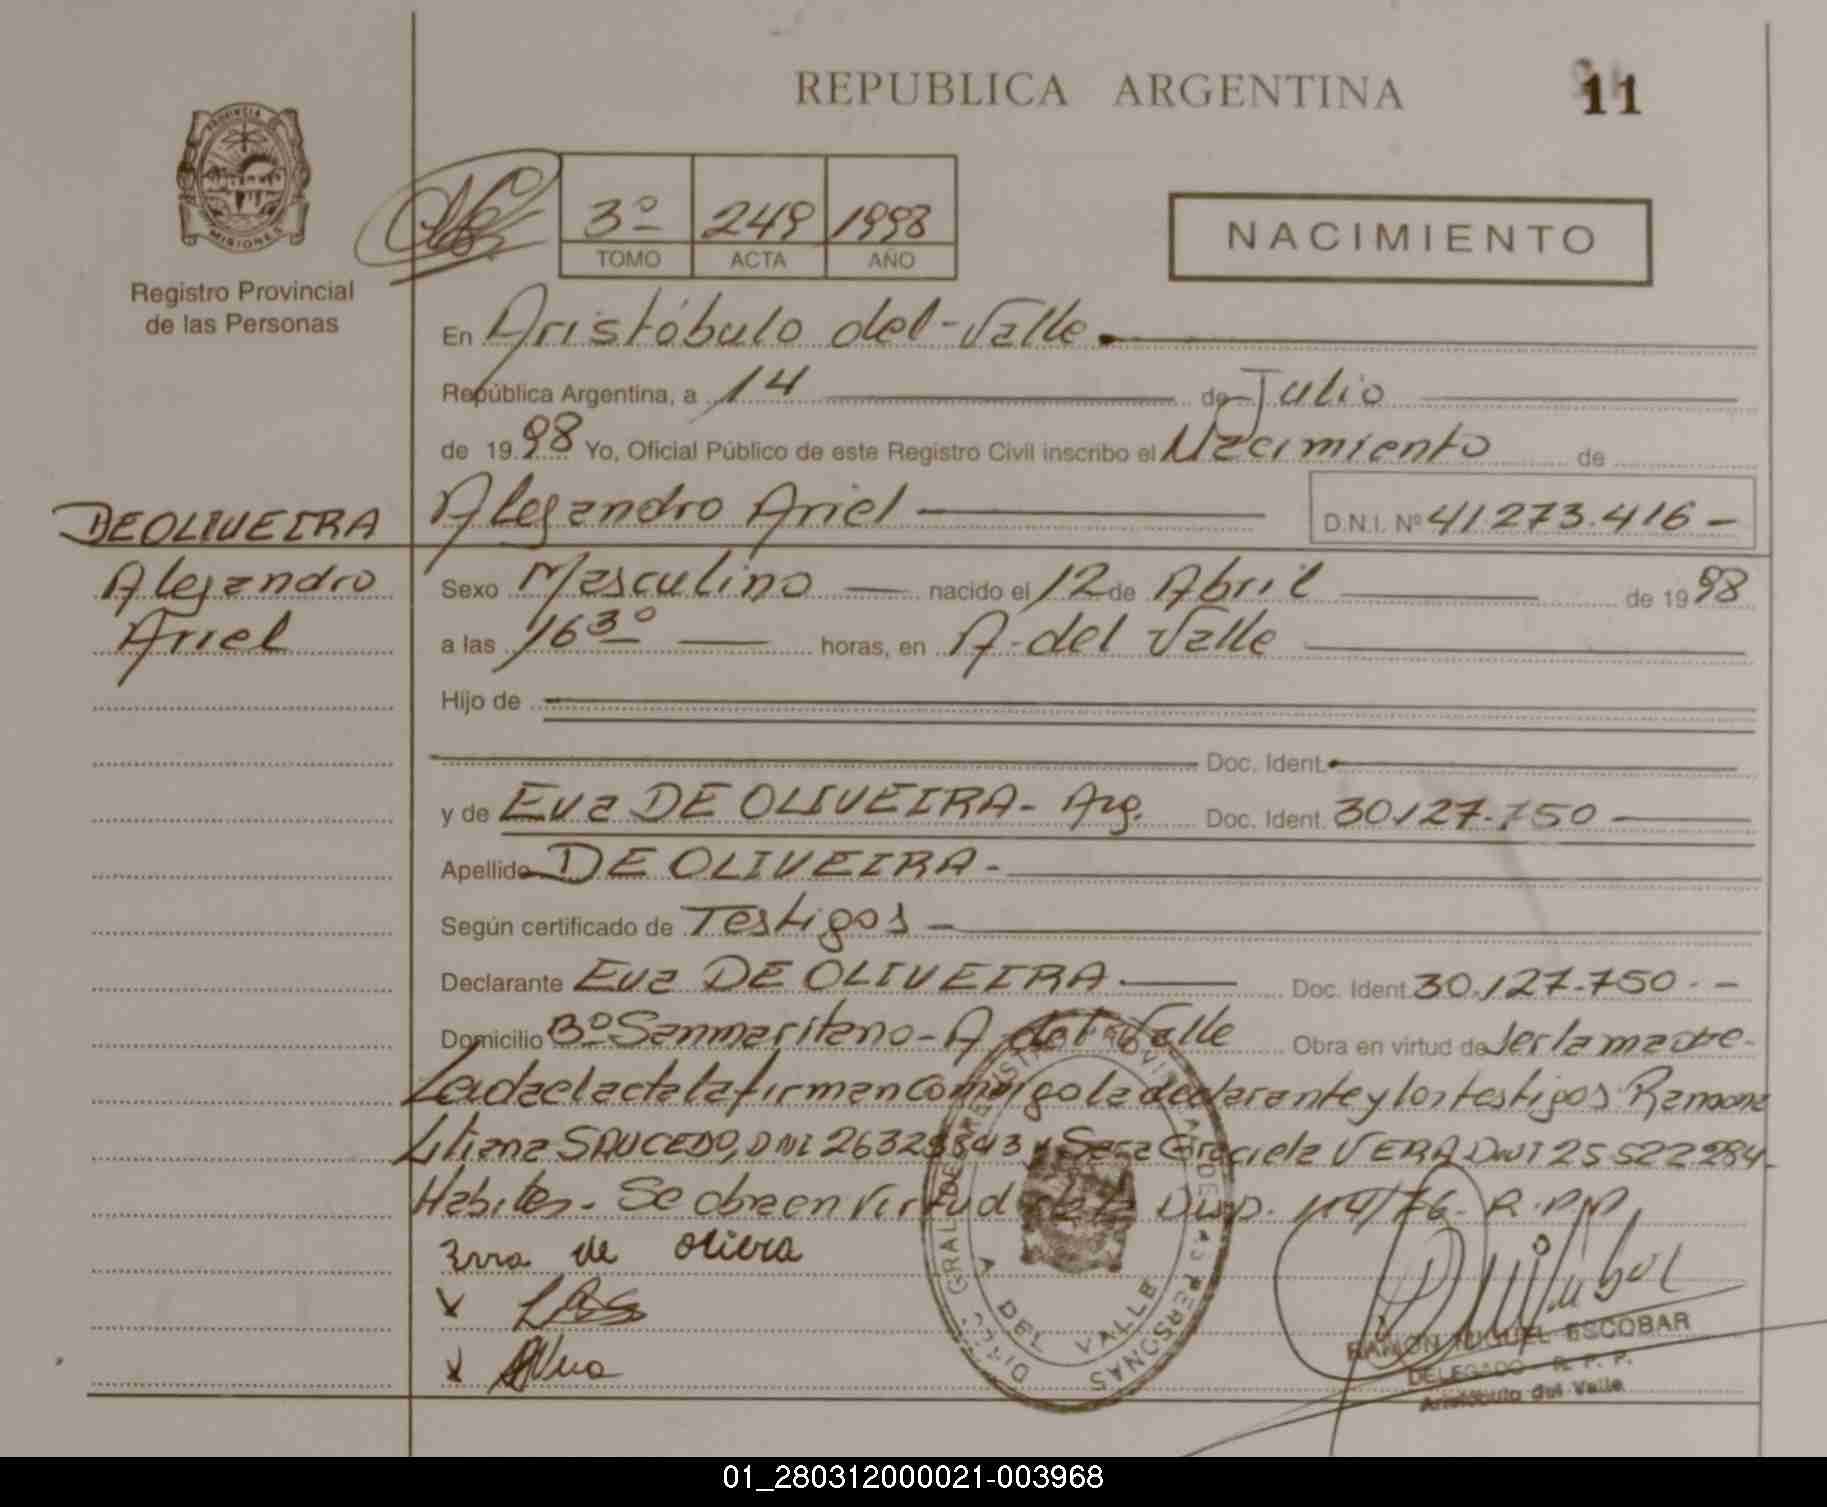 REPUBLICA ARGENTINA
11
PROVINCIA DE
MISIONES
Registro Provincial
de las Personas
3º 249 1998
TOMO ACTA AÑO
NACIMIENTO
En Aristóbulo del Valle
República Argentina, a 14 de Julio
de 1998 Yo, Oficial Público de este Registro Civil inscribo el Nacimiento de
DE OLIVEIRA
Alejandro
Ariel
Alejandro Ariel D.N.I. Nº 41.273.416 -
Sexo Masculino nacido el 12 de Abril de 1998
a las 16 3º horas, en A. del Valle
Hijo de
Doc. Ident.
y de Eva DE OLIVEIRA - Arg. Doc. Ident. 30.127.750
Apellido DE OLIVEIRA -
Según certificado de Testigos -
Declarante Eva DE OLIVEIRA Doc. Ident. 30.127.750 -
Domicilio Bº Sanmaritano - A. del Valle Obra en virtud de ser la madre -
Leida el acta la firman conmigo la declarante y los testigos Ramona
Liliana SAUCEDO, DNI y Sara Graciela VERA DNI 25522284 -
Habiles - Se obra en virtud de la Disp. 114/76 - R.P.P.
de olivra
A DEL VALLE
RAMON MIGUEL ESCOBAR
DELEGADO - R. P. P.
Aristóbulo del Valle
01_280312000021-003968